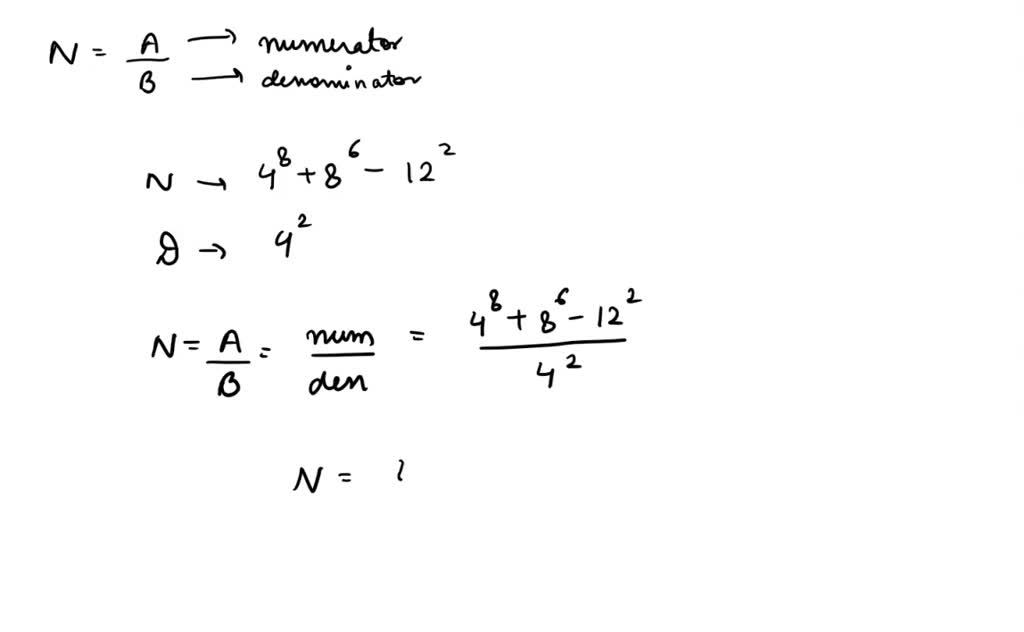 N = A/B → numerator
→ denominator
N → 4^8 + 8^6 - 12^2
D → 4^2
N = A/B = num/den = (4^8 + 8^6 - 12^2)/4^2
N =